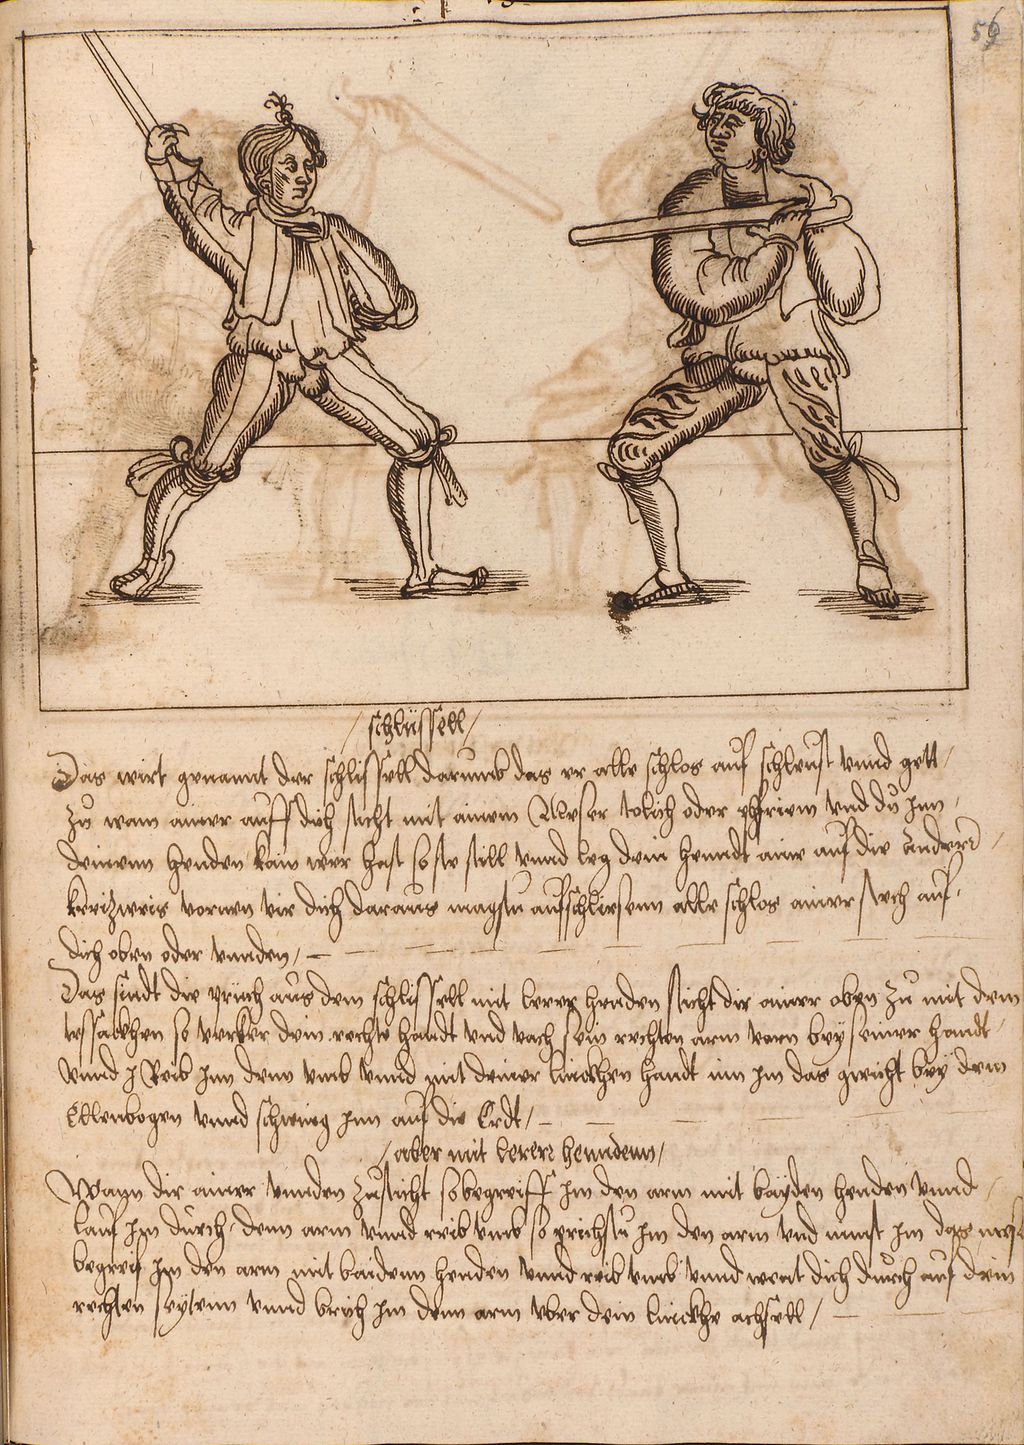 56
/ schlüssell /
Das wirt genannt der schlissell darumb das er alle schlos auf schleust vnnd gett /
Zu wann ainer auff dich sticht mit ainem Messer tolich oder pfriem vnd du jnn /
deinenn henden kain wer hast so ste still vnnd leg dein henndt aine auf die Andere /
kreizweis vornen vir dich daraus magstu aufschliesenn alle schlos ainer stech auf
dich oben oder vnnden /
Das sindt die prüch aus dem schlissell mit lerer henden sticht dir ainer oben zu mit dem
so verker dein rechte handt vnd vach sein rechten arm vorn bey seiner handt /
vnnd Reib jnn denn vmb vnnd mit deiner linckhen handt nim jm das gewicht bey dem
Ellenbogen vnnd schwing jnn auf die Erdt /
/ aber mit lerere henndenn /
Wann dir ainer vnnden zusticht so begreiff jm den arm mit bayden henden vnnd /
lauf jm durch denn arm vnnd reib vmb so prichstu jm den arm vnd nimst jm das
begreif jm den arm mit baidenn henden vnnd reib vmb vnnd went dich durch auf dein
rechten seytenn vnnd brich jm denn arm vber dein linckhe achsell /